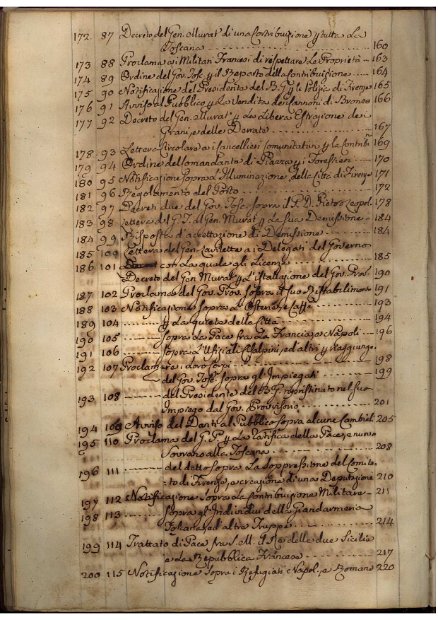 172 87 Decreto del Gen. Murat di una Contribuzione p tutta La
Toscana 160
173 88 Proclama ai Militari Francesi di rispettare Le Proprietà 163
174 89 Ordine del Gov. Tosc. p il Reparto della Contribuzione 164
175 90 Notificazione del Presidente del B. G. p la Polizia di Firenze 165
176 91 Avviso al Pubblico p La Vendita dei Cannoni di Bronzo 166
177 92 Decreto del Gen. Murat p La Libera Estrazione dei
Grani, e delle Derrate 167
178 93 Lettera Circolare ai Cancellieri Comunitativi p la Contrib. 169
179 94 Ordine del Comandante di Piazza p i Forestieri 170
180 95 Notificazione sopra L'Illuminazione della Città di Firenze 171
181 96 Regolamento del 172
182 97 Decreti due del Gov. Tosc. sopra il P. D. Pietro Leopol. 178
183 98 Lettera del G. T. al Gen. Murat p La sua Demissione 184
184 99 Risposta d'accettazione di Demissione 184
185 100 Lettera del Gen. ai Delegati del Governo
186 101 con La quale gli Licenzia 185
Decreto del Gen. Murat p L'Istallazione del Gov. Prov. 190
187 102 Proclama del Gov. Prov. sopra il suo Ristabilimento 191
188 103 Notificazione sopra Le Osterie, e Caffè 193
189 104 p La Quiete della Città 194
190 105 sopra La Pace fra La Francia, e Napoli 196
191 106 sopra L' Uffiziali 198
192 107 Proclama
del Gov. Tosc. sopra gl'Impiegati 199
193 108 del Presidente del B. G. nel suo
Impiego dal Gov. Provvisorio 201
194 109 Avviso del Dauchy al Pubblico sopra alcune Cambiali 205
195 110 Proclama del G. P. p La Ratifica della Pace, e nuovo
Sovrano alla Toscana 208
196 111 del detto sopra La Soppressione del Comita-
to di Firenze, e creazione di una Deputazione 210
197 112 Notificazione sopra La Contribuzione Militare 211
198 113 sopra gl'Individui della Giandarmeria
Toscana, ed altre Truppe 214
199 114 Trattato di Pace fra S. M. il Re delle due Sicilie
e La Repubblica Francese 217
200 115 Notificazione sopra i Refugiati Napol., e Romani 220